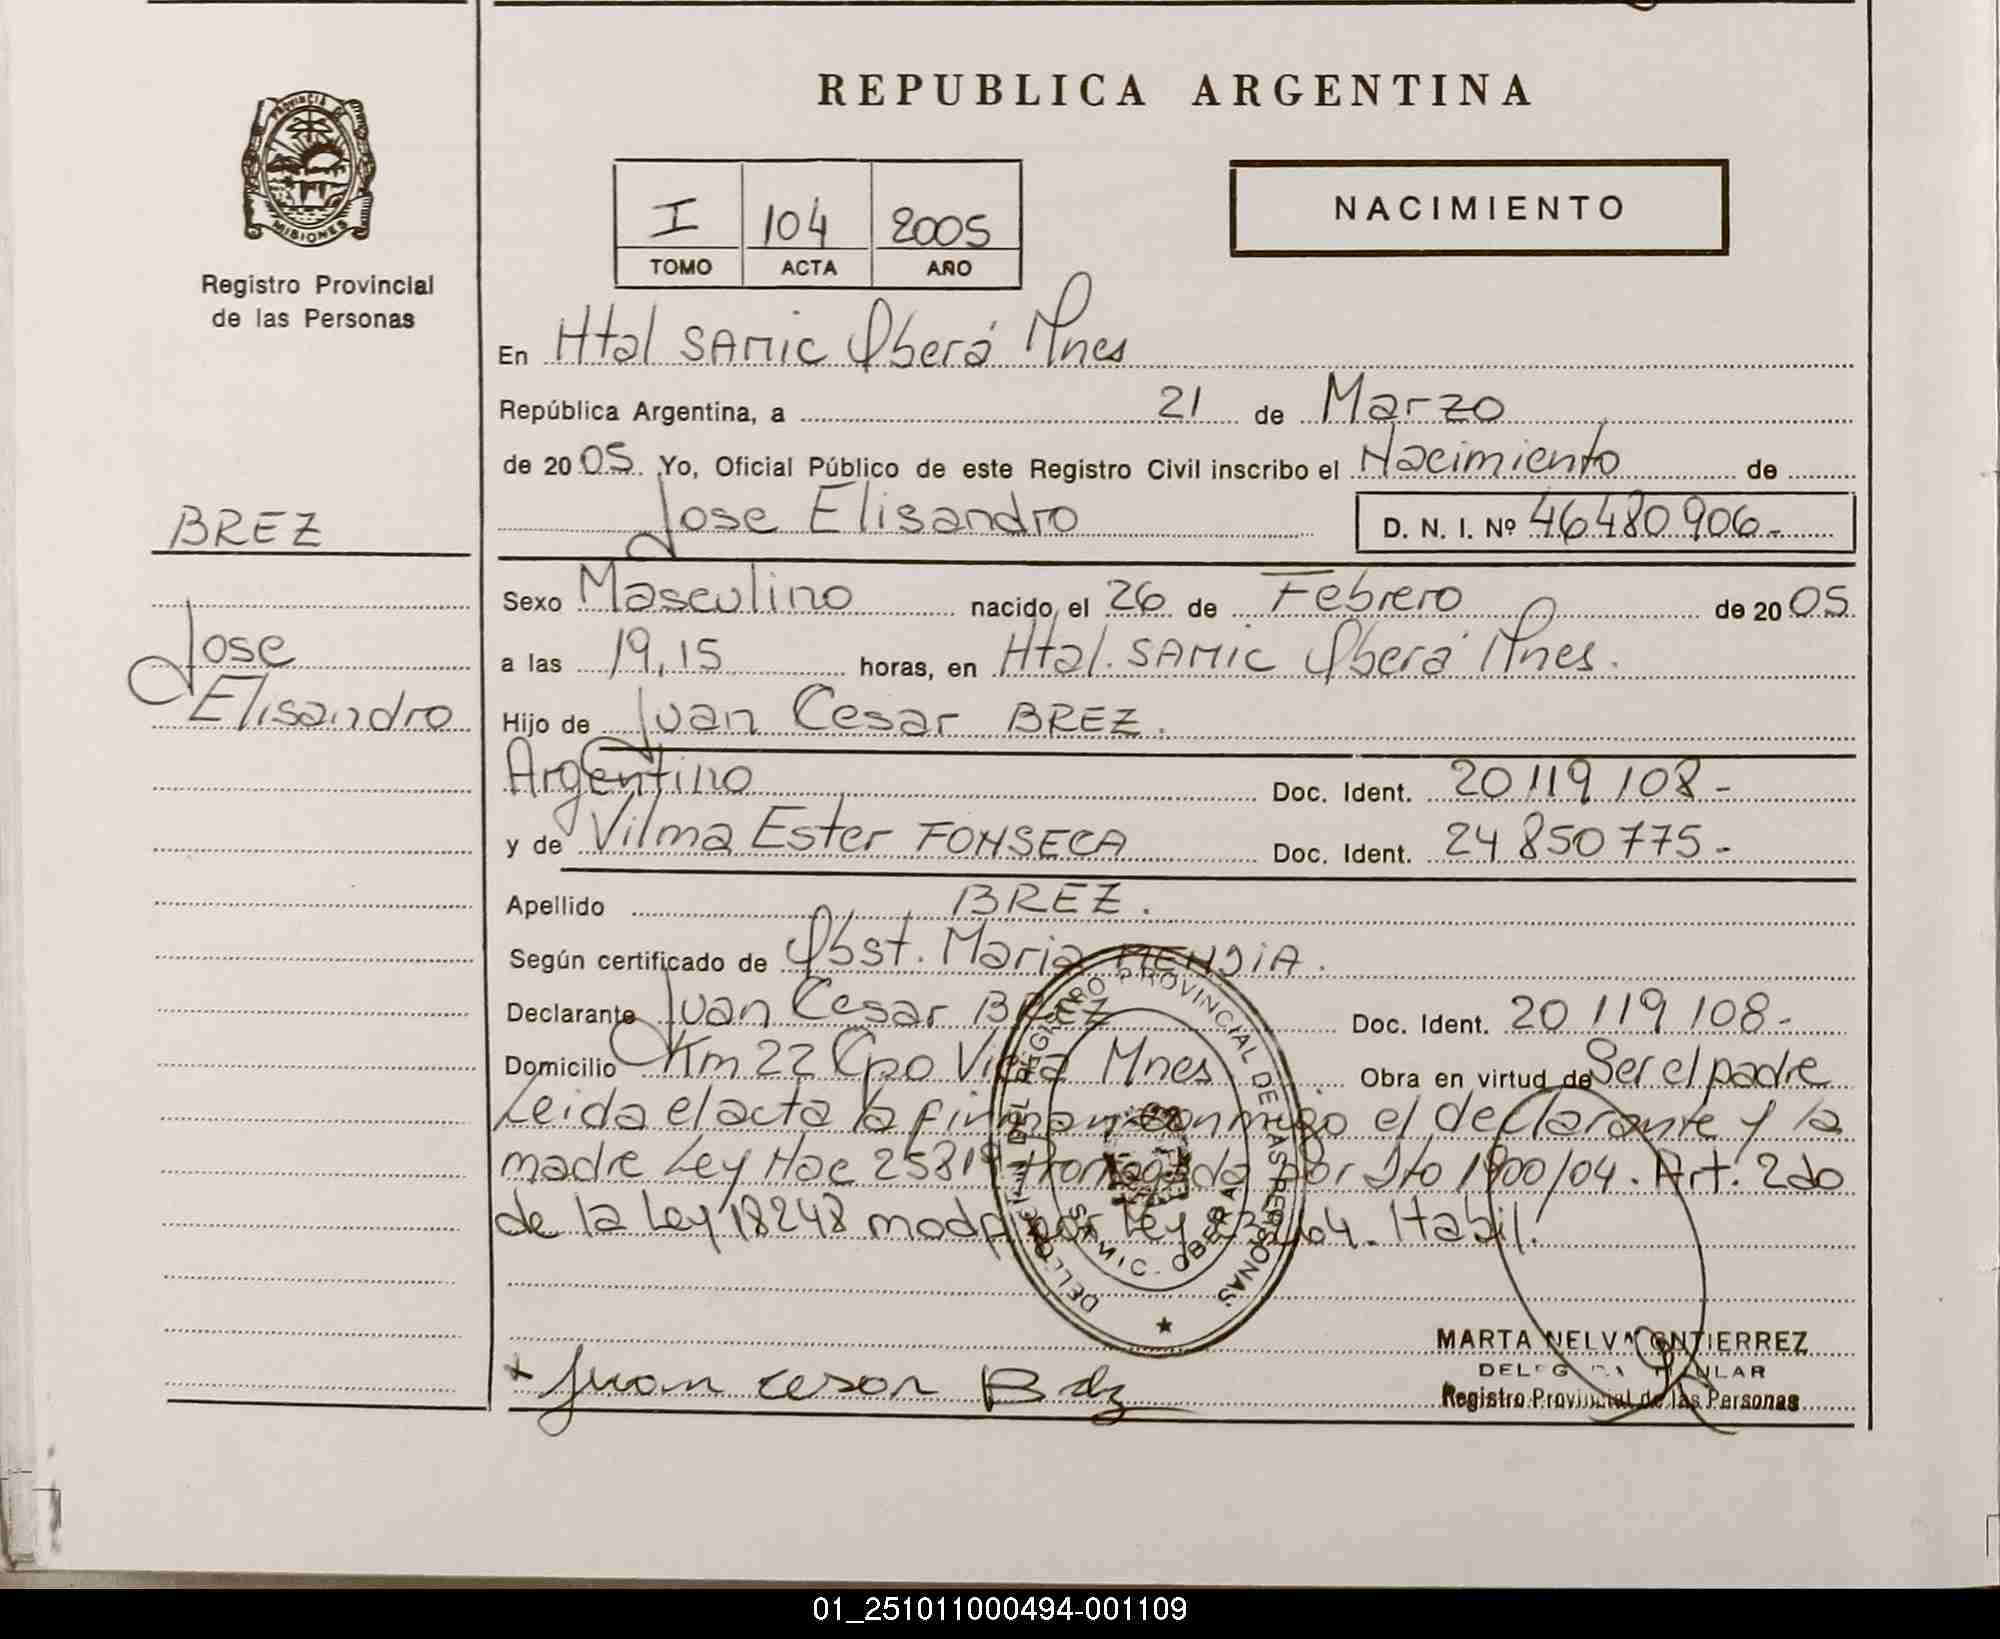 REPUBLICA ARGENTINA
PROVINCIA DE
MISIONES
Registro Provincial
de las Personas
I 104 2005
TOMO ACTA AÑO
NACIMIENTO
En Htal SAMIC Oberá Mnes
República Argentina, a 21 de Marzo
de 20 05. Yo, Oficial Público de este Registro Civil inscribo el Nacimiento de
Jose Elisandro D. N. I. Nº 46480906-
BREZ
Jose
Elisandro
Sexo Masculino nacido, el 26 de Febrero de 20 05
a las 19,15 horas, en Htal. SAMIC Oberá Mnes.
Hijo de Juan Cesar BREZ.
Argentino Doc. Ident. 20 119 108-
y de Vilma Ester FONSECA Doc. Ident. 24 850 775-
Apellido BREZ.
Según certificado de Obst. Maria
Declarante Juan Cesar BREZ Doc. Ident. 20 119 108-
Domicilio Km 22 Cpo Viera Mnes Obra en virtud de Ser el padre
Leida el acta la firman conmigo el declarante y la
madre Ley Nac 25819 por Dto 1900/04. Art. 2do
de la Ley 18248 modf por Ley Habil.
REGISTRO PROVINCIAL DE LAS PERSONAS
SAMIC. OBERA
Juan cesar
MARTA NELVA
TITULAR
Registro Provincial de las Personas
01_251011000494-001109